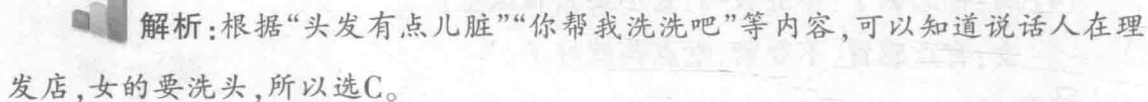 解析:根据“头发有点儿脏”“你帮我洗洗吧”等内容,可以知道说话人在理
发店,女的要洗头,所以选C。